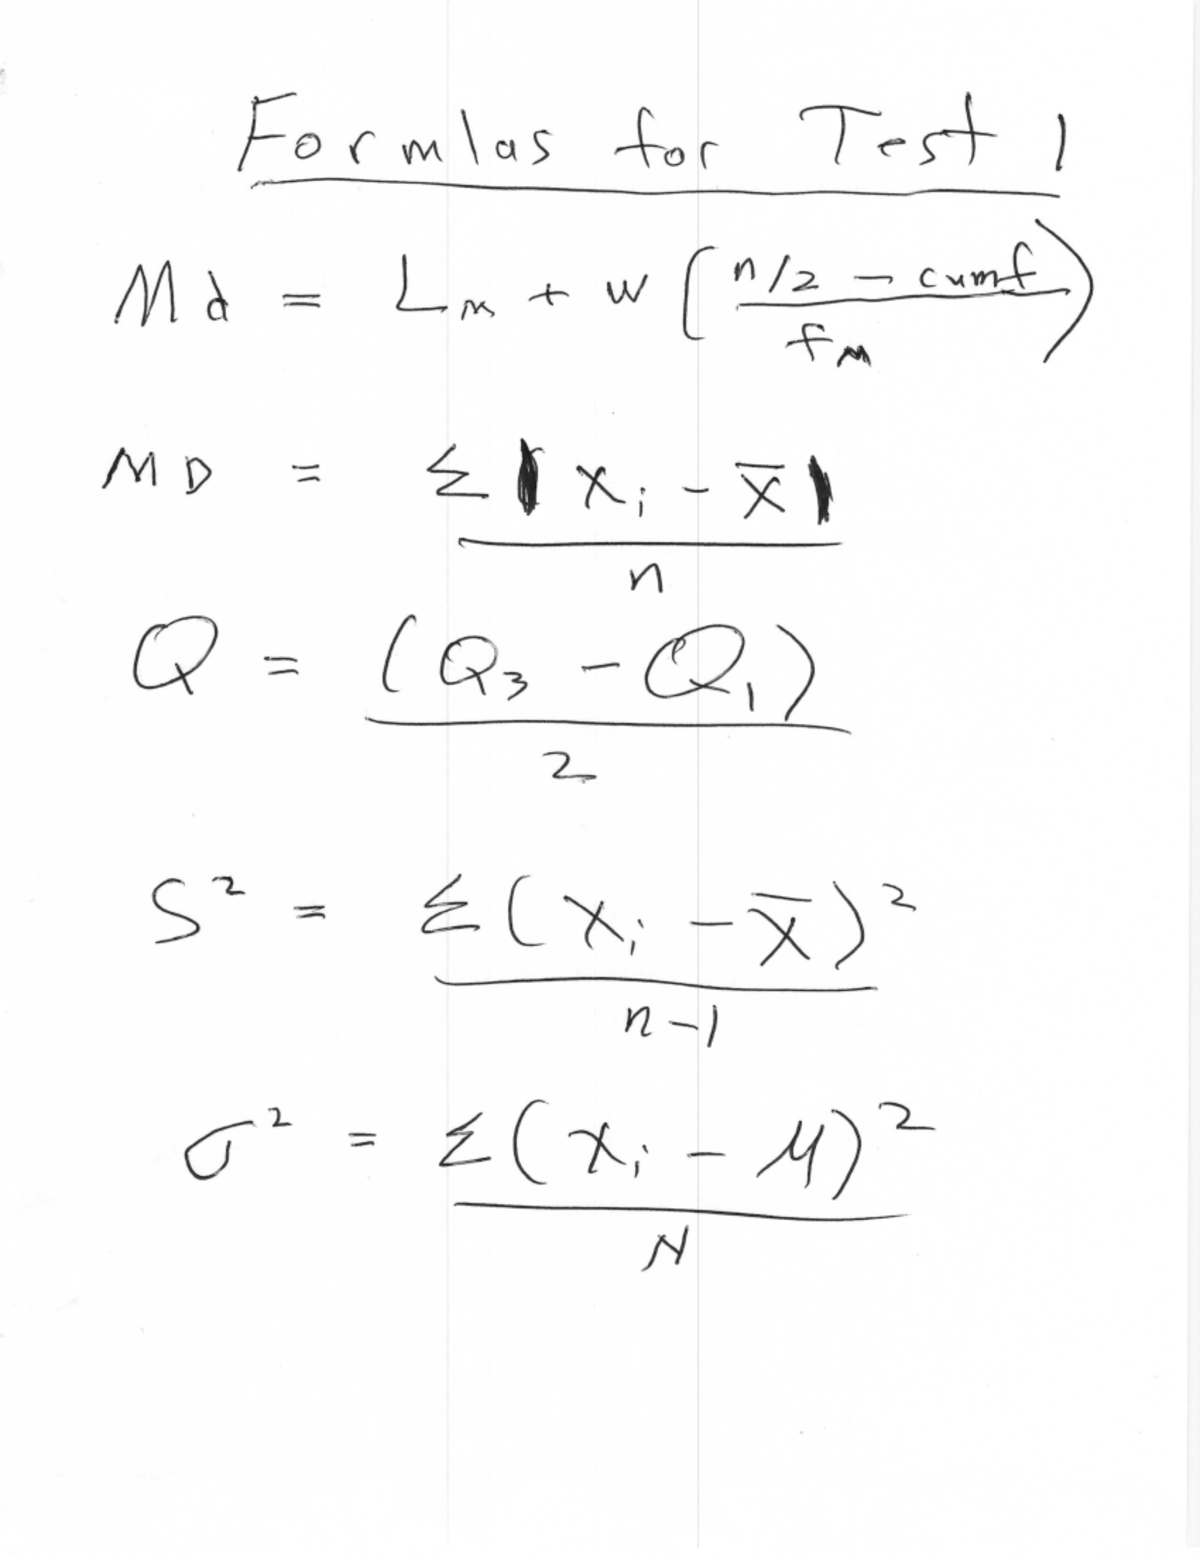 Formlas for Test 1
Md = Lm + w (n/2 - cumf / fm)
MD = Σ|xi - x̄| / n
Q = (Q3 - Q1) / 2
S² = Σ(xi - x̄)² / n-1
σ² = Σ(xi - μ)² / N